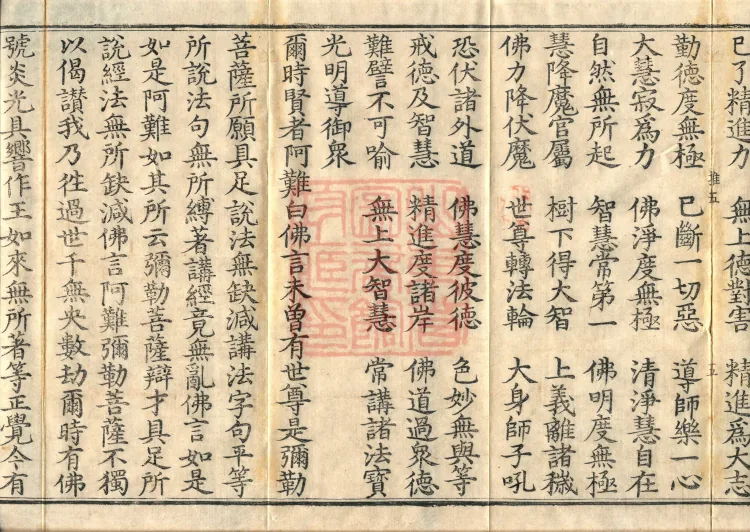 已了精進力　無上德對害　精進爲大志
勤德度無極　已斷一切惡　導師樂一心
大慧寂爲力　佛淨度無極　清淨慧自在
自然無所起　智慧常第一　佛明度無極
慧降魔官屬　樹下得大智　上義離諸穢
佛力降伏魔　世尊轉法輪　大身師子吼
恐伏諸外道　佛慧度彼德　色妙無與等
戒德及智慧　精進度諸岸　佛道過衆德
難譬不可喻　無上大智慧　常講諸法寶
光明導御衆
爾時賢者阿難白佛言未曾有世尊是彌勒
菩薩所願具足說法無缺減講法字句平等
所說法句無所縛著講經竟無亂佛言如是
如是阿難如其所云彌勒菩薩辯才具足所
說經法無所缺減佛言阿難彌勒菩薩不獨
以偈讃我乃往過世千無央數劫爾時有佛
號炎光具響作王如來無所著等正覺今有
推五
五